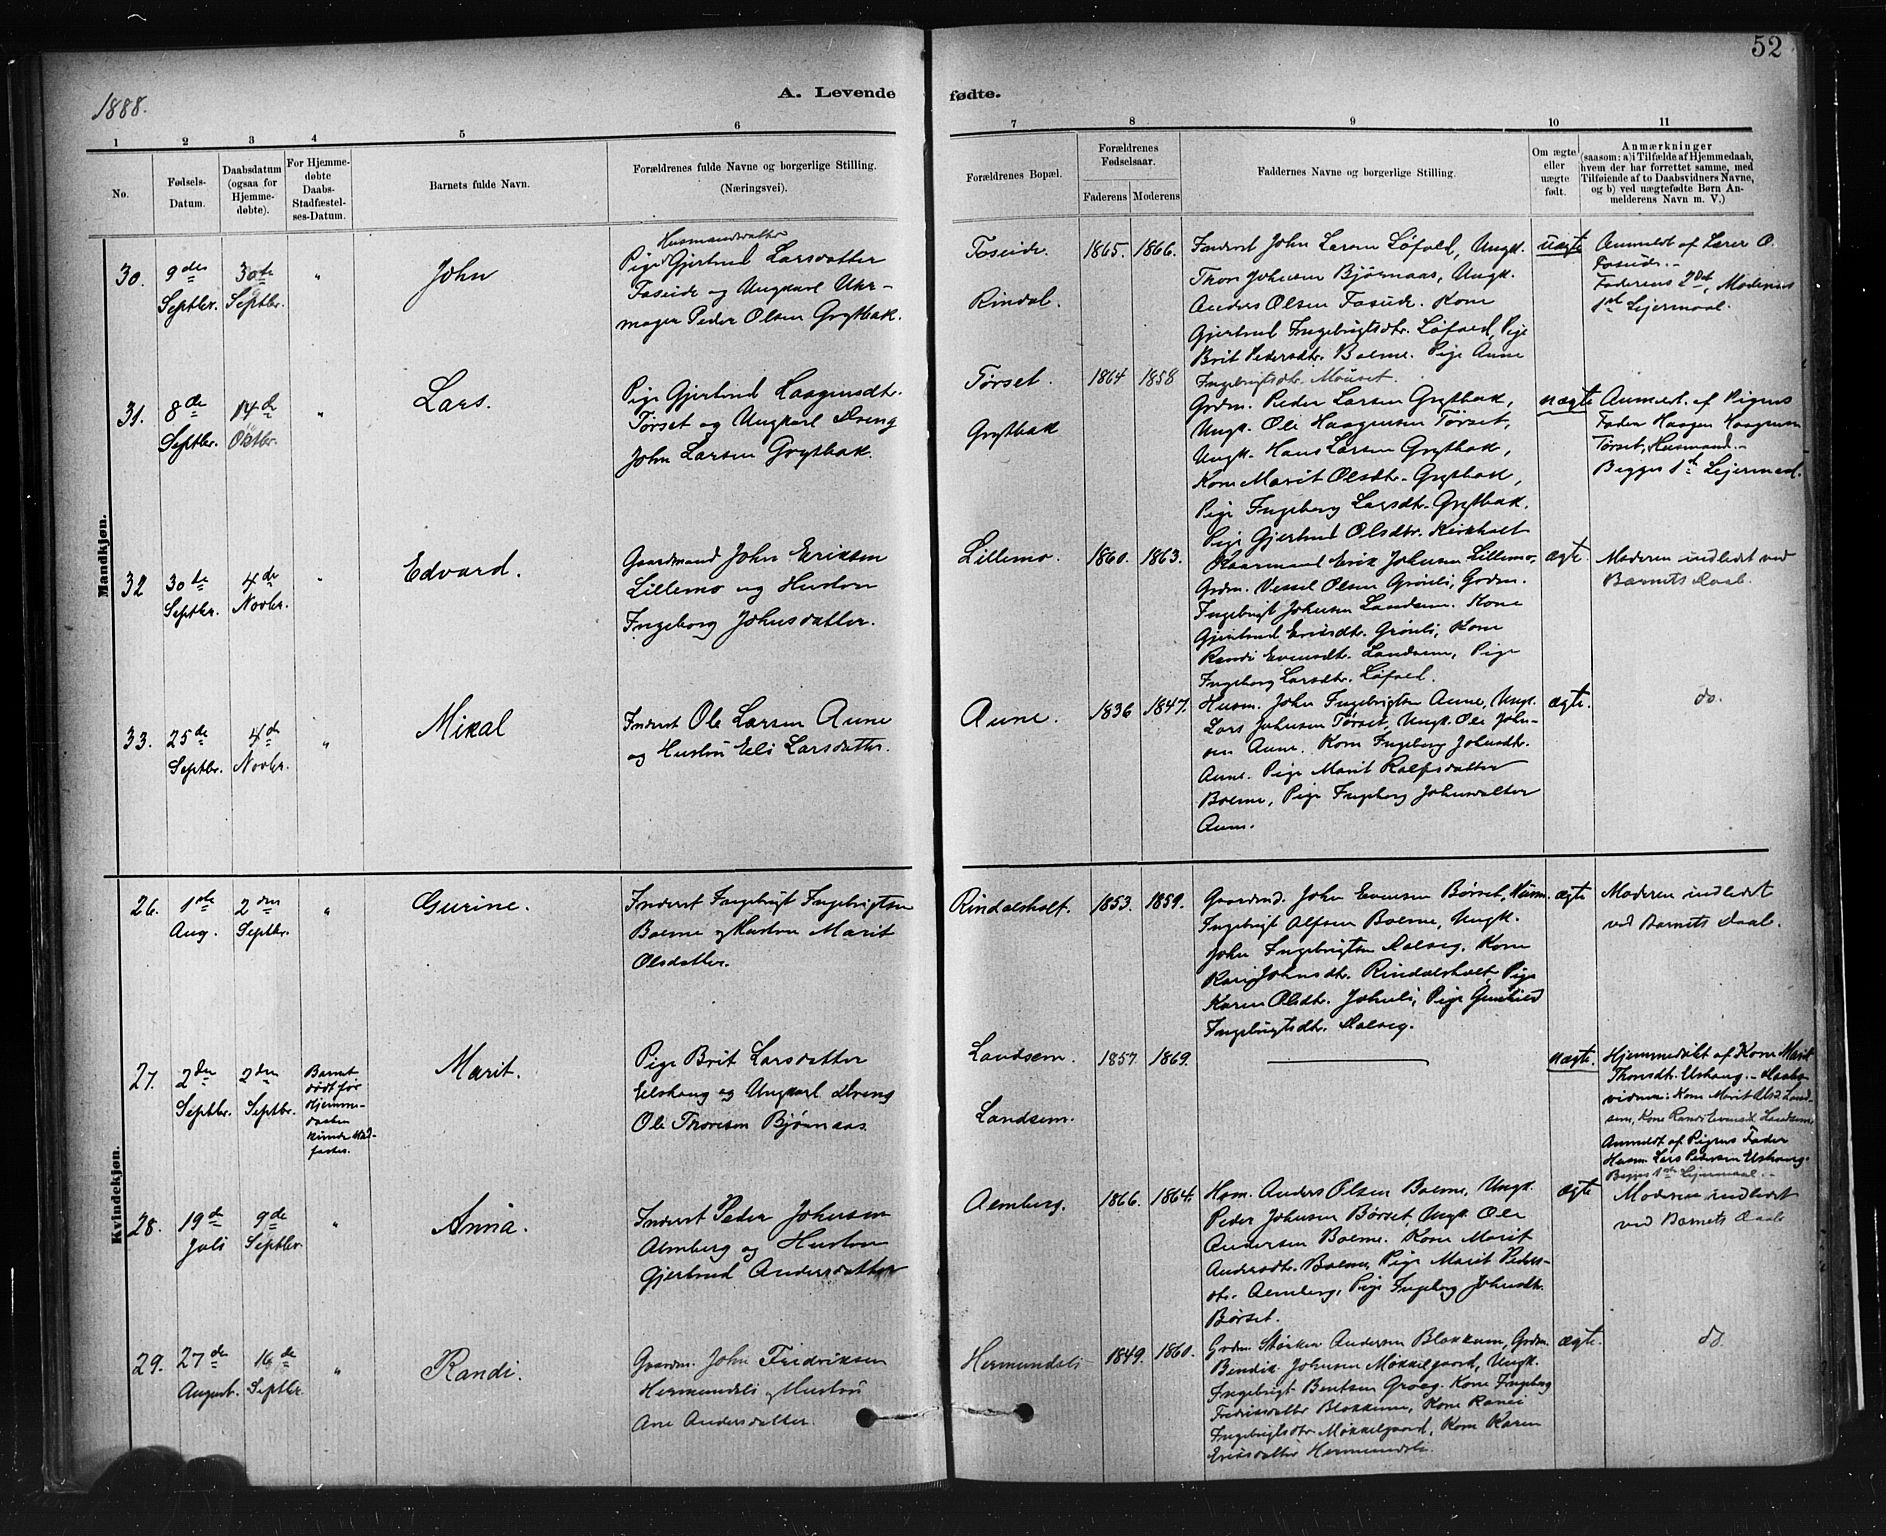 52
1888.
A. Levende fødte.
1 2 3 4 5 6 7 8 9 10 11
No.
Fødsels-
Datum.
Daabsdatum
(ogsaa for
Hjemme-
døbte).
For Hjemme-
døbte
Daabs-
Stadfæstel-
ses-Datum.
Barnets fulde Navn.
Forældrenes fulde Navne og borgerlige Stilling.
(Næringsvei).
Forældrenes Bopæl.
Forældrenes
Fødselsaar.
Faderens Moderens
Faddernes Navne og borgerlige Stilling.
Om ægte
eller
uægte
født.
Anmærkninger
(saasom: a) i Tilfælde af Hjemmedaab,
hvem der har forrettet samme, med
Tilføiende af to Daabsvidners Navne,
og b) ved uægtefødte Børn An-
melderens Navn m. V.)
Mandkjøn.
30.
9de
Septbr.
30te
Septbr.
"
John
Husmandsdatter
Pige Gjertrud Larsdatter
Faseide og Ungkarl Uhr-
mager Peder Olsen Grytbak.
Faseide
Rindal.
1865. 1866.
Inderst John Larsen Løfald, Ungk.
Thore Johnsen Bjørnaas, Ungk.
Anders Olsen Faseide. Kone
Gjertrud Ingebrigtsdtr. Løfald, Pige
Brit Pedersdtr. Bolme. Pige Anne
Ingebrigtsdtr.
uægte
Anmeldt af Lærer O.
Faseide.
Faderens 2det, Moderens
1ste Lejermaal.
31.
8de
Septbr.
14de
Oktbr.
"
Lars.
Pige Gjertrud Haagensdtr.
Tørset og Ungkarl Dreng
John Larsen Grytbak.
Tørset.
Grytbak
1864 1858
Grdm. Peder Larsen Grytbak,
Ungk. Ole Haagensen Tørset,
Ungk. Hans Larsen Grytbak,
Kone Marit Olsdtr. Grytbak,
Pige Ingeborg Larsdtr. Grytbak,
Pige Gjertrud Olsdtr. Kirkholt
uægte
Anmeldt af Pigens
Fader Haagen Haagensen
Tørset, Husmand.
Begges 1ste Lejermaal.
32
30te
Septbr.
4de
Novbr.
"
Edvard.
Gaardmand John Eriksen
Lillemo og Hustru
Ingeborg Johnsdatter.
Lillemo.
1860. 1863.
Kaarmand Erik Johnsen Lillemo,
Grdm. Vessel Olsen Grønli, Grdm.
Ingebrigt Johnsen Landsem. Kone
Gjertrud Eriksdtr. Grønli, Kone
Randi Evensdtr. Landsem, Pige
Ingeborg Larsdtr. Løfald.
ægte.
Moderen indledet ved
Barnets Daab.
33.
25de
Septbr.
4de
Novbr.
"
Mikal
Inderst Ole Larsen Aune
og Hustru Eli Larsdatter.
Aune.
1836 1847.
Husm. John Ingebrigtsen Aune, Ungk.
Lars Johnsen Tørset, Ungk. Ole John-
sen Aune. Kone Ingeborg Johnsdtr.
Aune. Pige Marit Rolfsdatter
Bolme, Pige Ingeborg Johnsdatter
Aune.
ægte.
do.
Kvindekjøn.
26.
1ste
Aug.
2den
Septbr.
"
Gurine.
Inderst Ingebrigt Ingebrigtsen
Bolme og Hustru Marit
Olsdatter.
Rindalsholt.
1853. 1859.
Gaardmd. John Evensen Børset, Husm.
Ingebrigt Alfsen Bolme, Ungk.
John Ingebrigtsen Aalvig. Kone
Kari Johnsdtr. Rindalsholt, Pige
Karen Olsdtr. Johnli, Pige Gunhild
Ingebrigtsdtr. Aalvig.
ægte
Moderen indledet
ved Barnets Daab.
27.
2den
Septbr.
2den
Septbr.
Barnet
dødt før
Hjemme-
daaben
kunde stad-
festes.
Marit.
Pige Brit Larsdatter
og Ungkarl Dreng
Ole Thoresen Bjørnaas
Landsem.
Landsem.
1857. 1869.
uægte.
Hjemmedøbt af Kone Marit
Thoresdtr. Ushaug. - Daabs-
vidner: Kone Marit Olsd. Land-
sem, Kone Randi Evensd. Landsem.
Anmeldt af Pigens Fader
Husm. Lars Pedersen Ushaug.
Begges 1ste Lejermaal.
28.
19de
Juli
9de
Septbr.
"
Anna.
Inderst Peder Johnsen
Almberg og Hustru
Gjertrud Andersdatter
Almberg.
1866. 1864.
Husm. Anders Olsen Bolme, Ungk.
Peder Johnsen Børset, Ungk. Ole
Andersen Bolme. Kone Marit
Andersdtr. Bolme, Pige Marit Peders-
dtr. Almberg, Pige Ingeborg Johnsdtr.
Børset.
ægte
Moderen indledet
ved Barnets Daab
29.
27de
August.
16de
Septbr.
"
Randi.
Gaardm. John Fredriksen
Hermundsli og Hustru
Ane Andersdatter.
Hermundsli
1849. 1860.
Grdm. Størker Andersen Blokkum, Grdm.
Bendik Johnsen Møkkelgaard, Ungk.
Ingebrigt Bentsen Kone Ingeborg
Fredriksdatter Blokkum, Kone Randi
Ingebrigtsdtr. Møkkelgaard, Kone Karen
Eriksdatter Hermundsli.
ægte.
do.